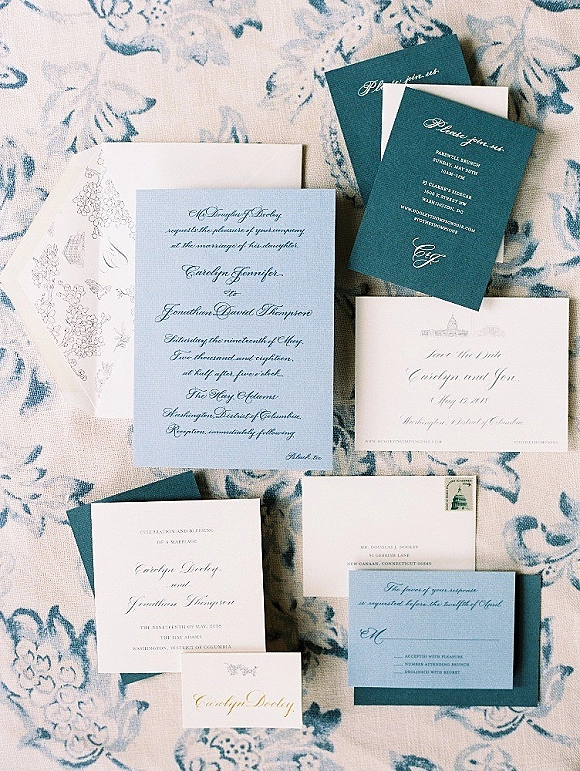 Mr. Douglas J. Dooley
requests the pleasure of your company
at the marriage of his daughter
Carolyn Jennifer
to
Jonathan David Thompson
Saturday, the nineteenth of May
Two thousand and eighteen
at half after five o'clock
The Hay Adams
Washington, District of Columbia
Reception immediately following
Black tie
Please join us
Please join us
FAREWELL BRUNCH
SUNDAY, MAY 20TH
10AM-1PM
PJ CLARKE'S SIDECAR
1600 K STREET NW
WASHINGTON, DC
C & J
Save the Date
Carolyn and Jon
May 19, 2018
Washington, District of Columbia
CELEBRATION AND BLESSING
OF A MARRIAGE
Carolyn Dooley
and
Jonathan Thompson
THE NINETEENTH OF MAY, 2018
THE HAY ADAMS
WASHINGTON, DISTRICT OF COLUMBIA
Carolyn Dooley
MR. DOUGLAS J. DOOLEY
NEW CANAAN, CONNECTICUT 06840
The favor of your response
is requested before the twelfth of April
M
ACCEPTED WITH PLEASURE
NUMBER ATTENDING BRUNCH
DECLINED WITH REGRET